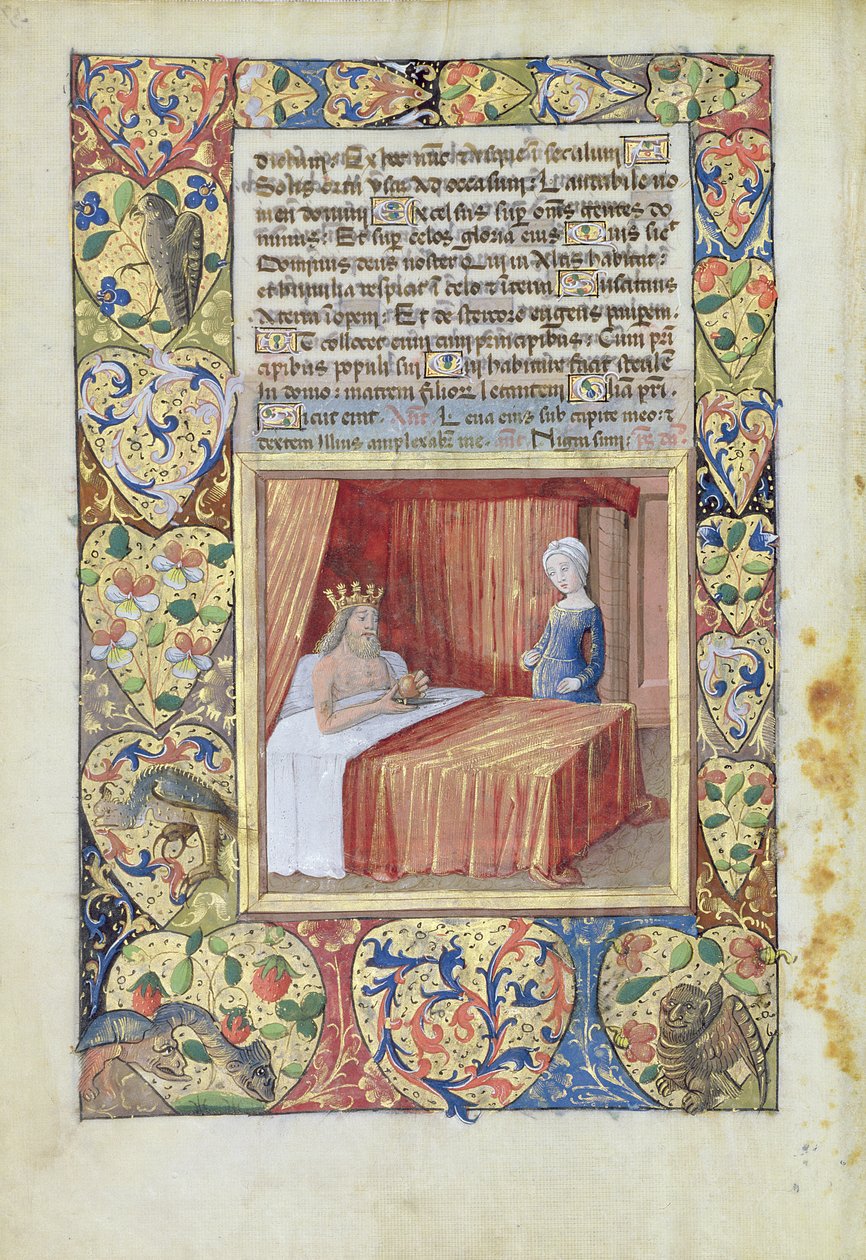 dictum: Ex hoc nūc et vsque ī seculum A
Solis ortu vsq ad occasum: Laudabile no
men domini Excelsus sup oms gentes do
minus: Et sup celos gloria eius Quis sic
Dominus deus noster Qui in altis habitat:
et humilia respicit ī celo et ī terra Suscitans
A terra īopem: Et de stercore erigens pauperem.
Ut collocet eum cum principibus: Cum prī
cipibus populi sui Qui habitare facit sterilē
In domo: matrem filior letantem Glīa prī.
Sicut erat. Ant. Leua eius sub capite meo: et
dextera illius amplexabit me. ant. Nigra sum: ps